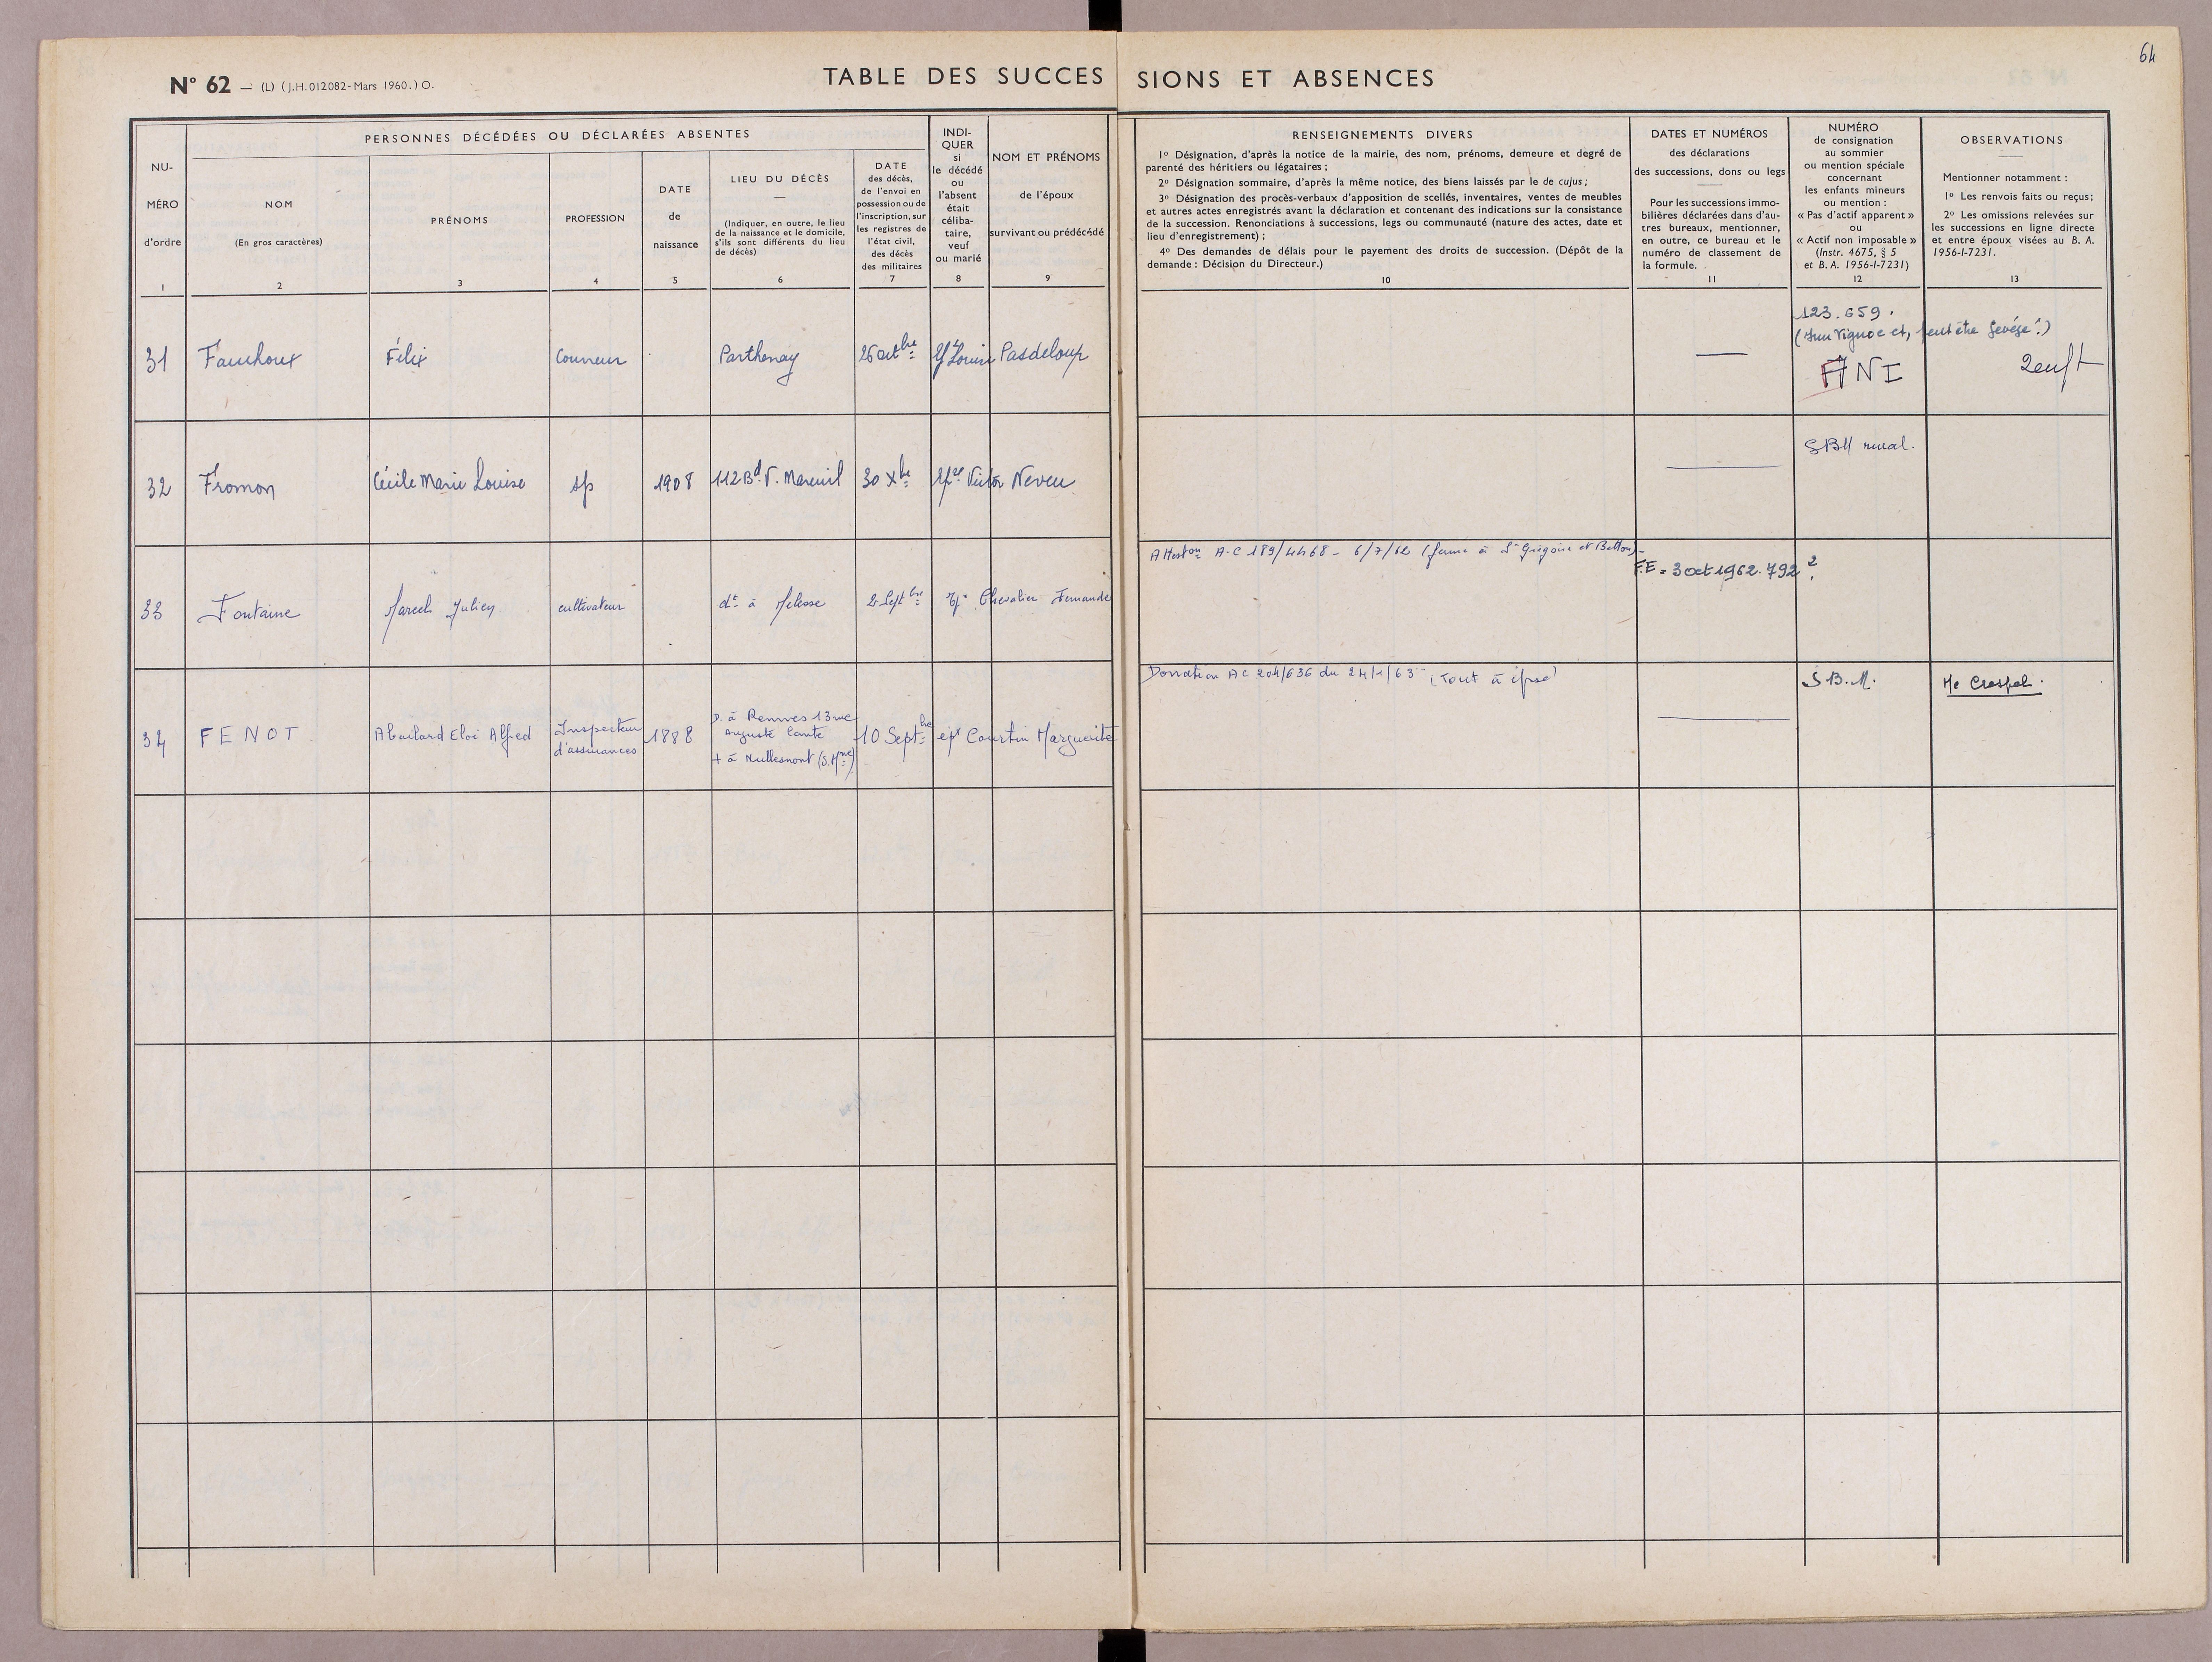 64
N° 62 — (L) (J.H. 012082-Mars 1960.) O.
TABLE DES SUCCESSIONS ET ABSENCES
PERSONNES DÉCÉDÉES OU DÉCLARÉES ABSENTES
NU-
MÉRO
d'ordre
1
NOM
(En gros caractères)
2
PRÉNOMS
3
PROFESSION
4
DATE
de
naissance
5
LIEU DU DÉCÈS
—
(Indiquer, en outre, le lieu
de la naissance et le domicile,
s'ils sont différents du lieu
de décès)
6
DATE
des décès,
de l'envoi en
possession ou de
l'inscription, sur
les registres de
l'état civil,
des décès
des militaires
7
INDI-
QUER
si
le décédé
ou
l'absent
était
céliba-
taire,
veuf
ou marié
8
NOM ET PRÉNOMS
de l'époux
survivant ou prédécédé
9
RENSEIGNEMENTS DIVERS
1º Désignation, d'après la notice de la mairie, des nom, prénoms, demeure et degré de
parenté des héritiers ou légataires ;
2º Désignation sommaire, d'après la même notice, des biens laissés par le de cujus ;
3º Désignation des procès-verbaux d'apposition de scellés, inventaires, ventes de meubles
et autres actes enregistrés avant la déclaration et contenant des indications sur la consistance
de la succession. Renonciations à successions, legs ou communauté (nature des actes, date et
lieu d'enregistrement) ;
4º Des demandes de délais pour le payement des droits de succession. (Dépôt de la
demande : Décision du Directeur.)
10
DATES ET NUMÉROS
des déclarations
des successions, dons ou legs
Pour les successions immo-
bilières déclarées dans d'au-
tres bureaux, mentionner,
en outre, ce bureau et le
numéro de classement de
la formule.
11
NUMÉRO
de consignation
au sommier
ou mention spéciale
concernant
les enfants mineurs
ou mention :
« Pas d'actif apparent »
ou
« Actif non imposable »
(Instr. 4675, § 5
et B. A. 1956-I-7231)
12
OBSERVATIONS
Mentionner notamment :
1º Les renvois faits ou reçus ;
2º Les omissions relevées sur
les successions en ligne directe
et entre époux visées au B. A.
1956-I-7231.
13
31 Fauchoux Félix Couvreur Parthenay 26 octbre Louise Pasdeloup —
123.659.
ANI
32 Fromon Cécile Marie Louise sp 1908 112 Bd V. Mareuil 30 Xbre Victor Neveu —
SBM rural.
33 Fontaine Marcel Julien cultivateur dt à Melesse 2 Septbre Chevalier Fernande
Atteston AC 189/4468 - 6/7/62 (ferme à St Grégoire et Betton) -
F.E = 3 oct 1962. 792 ?
34 FENOT Abailard Eloi Alfred Inspecteur
d'assurances 1888
D. à Rennes 13 rue
Auguste Comte
10 Septbre épx Courtin Marguerite
Donation AC 204/636 du 24/1/63 (Tout à épse)
—
S.B.M.
Me Crespel.